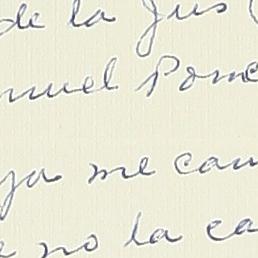 de la Jus
nuel Pome
ya me cam
no la ca